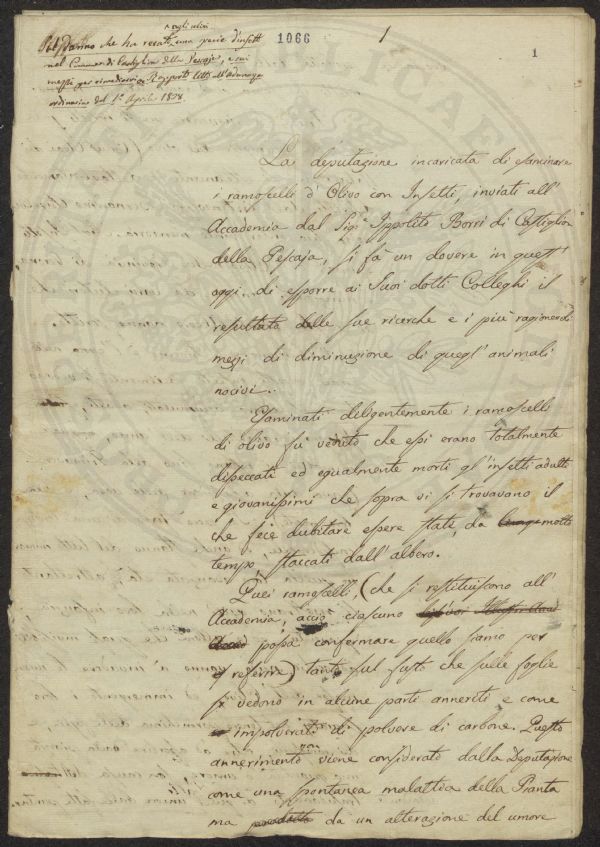 1066
1
1
agli ulivi
Sul Danno che ha recato una specie d'insetti
nel Comune di Castiglion della Pescaja, e sui
mezzi per rimediarvi. Rapporto letto all'adunanza
ordinaria del 1° Aprile 1828.
La deputazione incaricata di esaminare
i ramoscelli d'Olivo con Insetti, inviati all'
Accademia dal Sigr Ippolito Borri di Castiglion
della Pescaja, si fà un dovere in quest'
oggi di esporre ai Suoi dotti Colleghi il
resultato delle sue ricerche e i più ragionevoli
mezzi di diminuzione di quegl'animali
nocivi.
Esaminati diligentemente i ramoscelli
di olivo fù veduto che essi erano totalmente
disseccati ed egualmente morti gl'insetti adulti
e giovanissimi che sopra vi si trovavano il
che fece dubitare essere stati, da lungo molto
tempo, staccati dall'albero.
Quei ramoscelli, (che si restituiscono all'
Accademia, acciò ciascuno
possa confermare quello siamo per
referire) tanto sul fusto che sulle foglie
si vedono in alcune parti anneriti e come
impolverati di polvere di carbone. Questo
non
annerimento viene considerato dalla Deputazione
come una spontanea malattia della Pianta
ma prodotta da un alterazione del umore